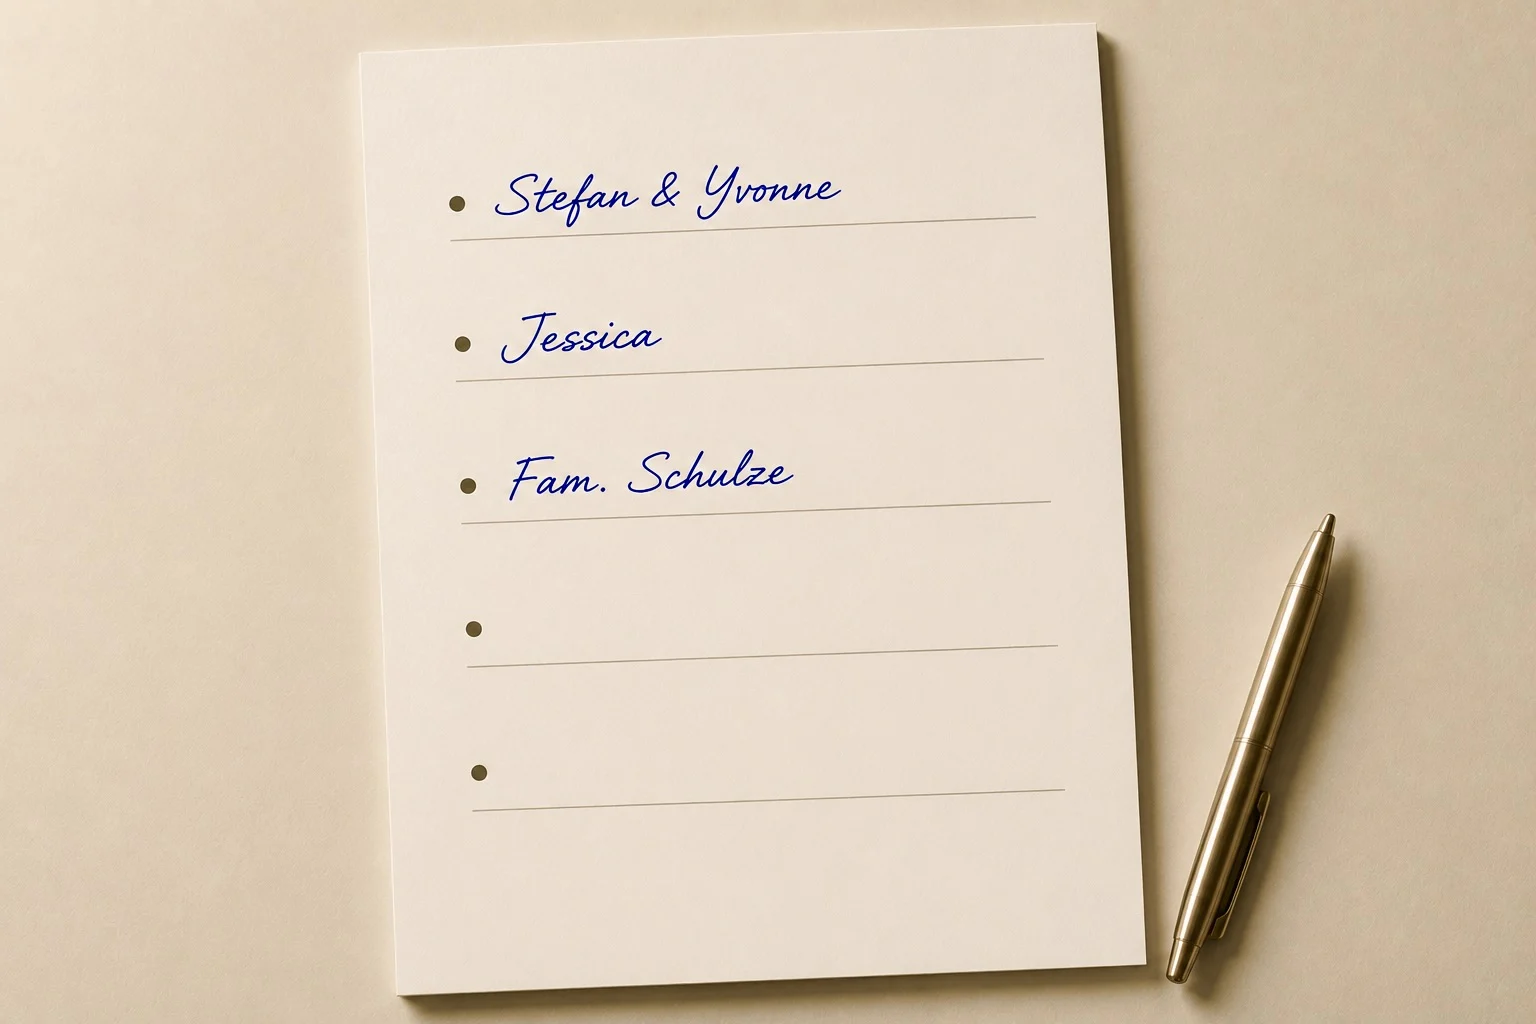 Stefan & Yvonne
Jessica
Fam. Schulze